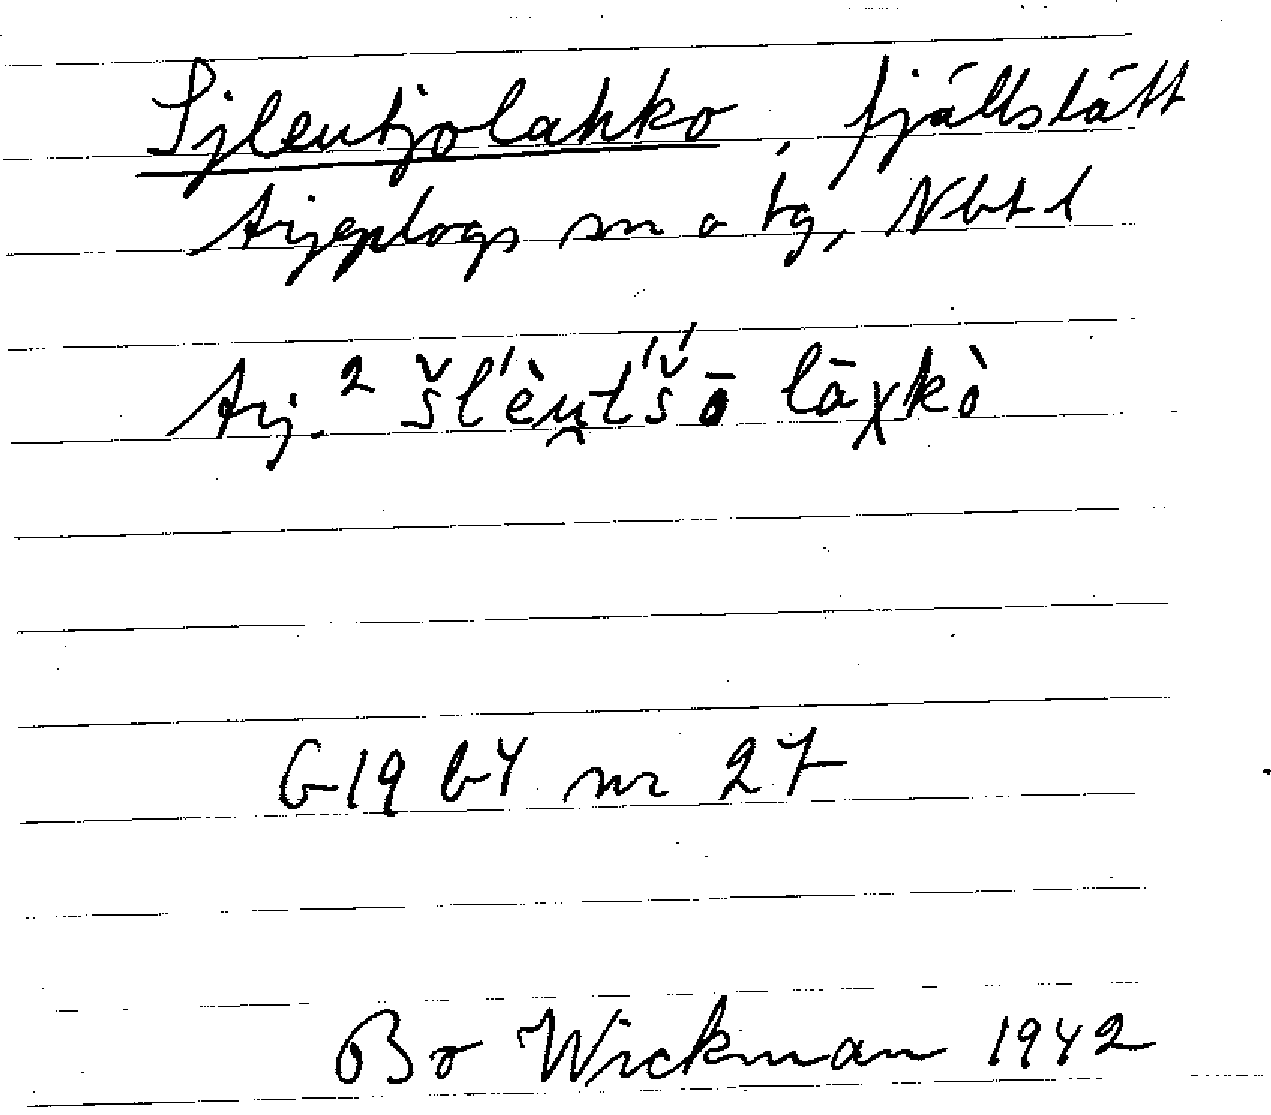 Sjleutjolahko, fjällslätt
Arjeplogs sn o tg, Nbtl
Arj.² šl'èu̯t'š'ō lāχkò
G19 b4 nr 27
Bo Wickman 1942